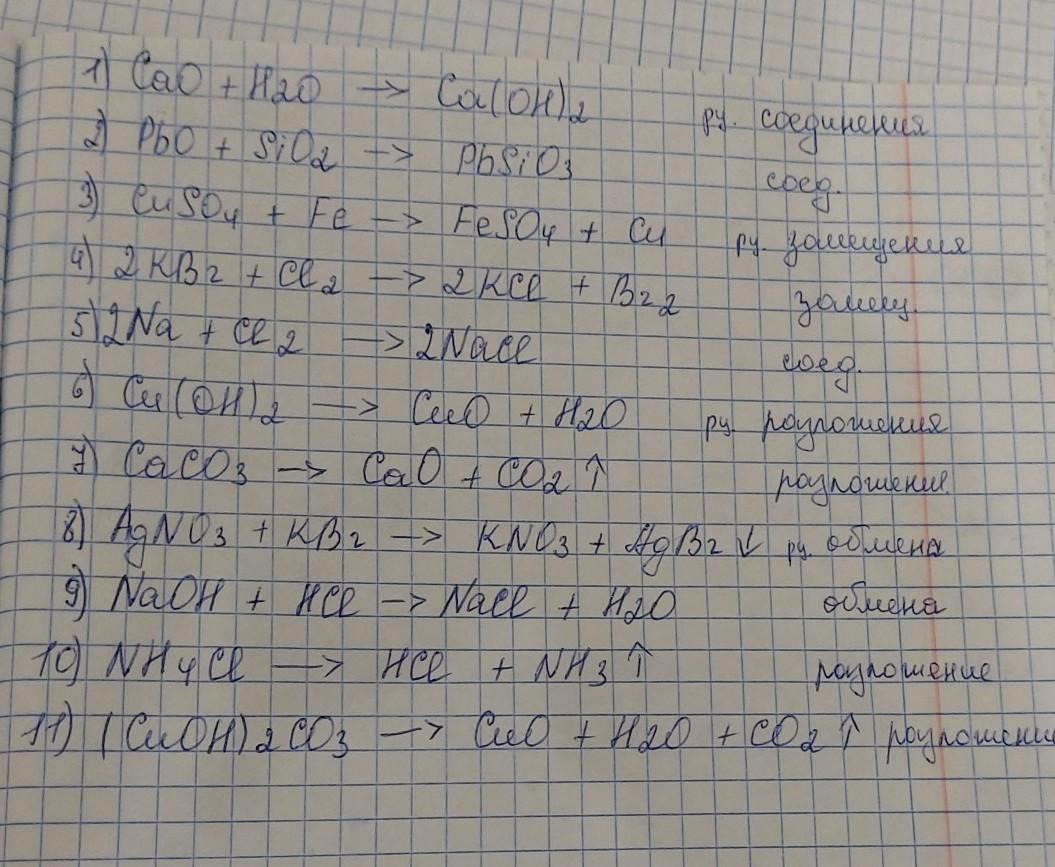 1) CaO + H2O → Ca(OH)2 рц. соединения
2) PbO + SiO2 → PbSiO3 соед.
3) CuSO4 + Fe → FeSO4 + Cu рц. замещения
4) 2KBr + Cl2 → 2KCl + Br2 замещ.
5) 2Na + Cl2 → 2NaCl соед.
6) Cu(OH)2 → CuO + H2O рц. разложения
7) CaCO3 → CaO + CO2↑ разложение
8) AgNO3 + KBr → KNO3 + AgBr↓ рц. обмена
9) NaOH + HCl → NaCl + H2O обмена
10) NH4Cl → HCl + NH3↑ разложение
11) (CuOH)2CO3 → CuO + H2O + CO2↑ разложени